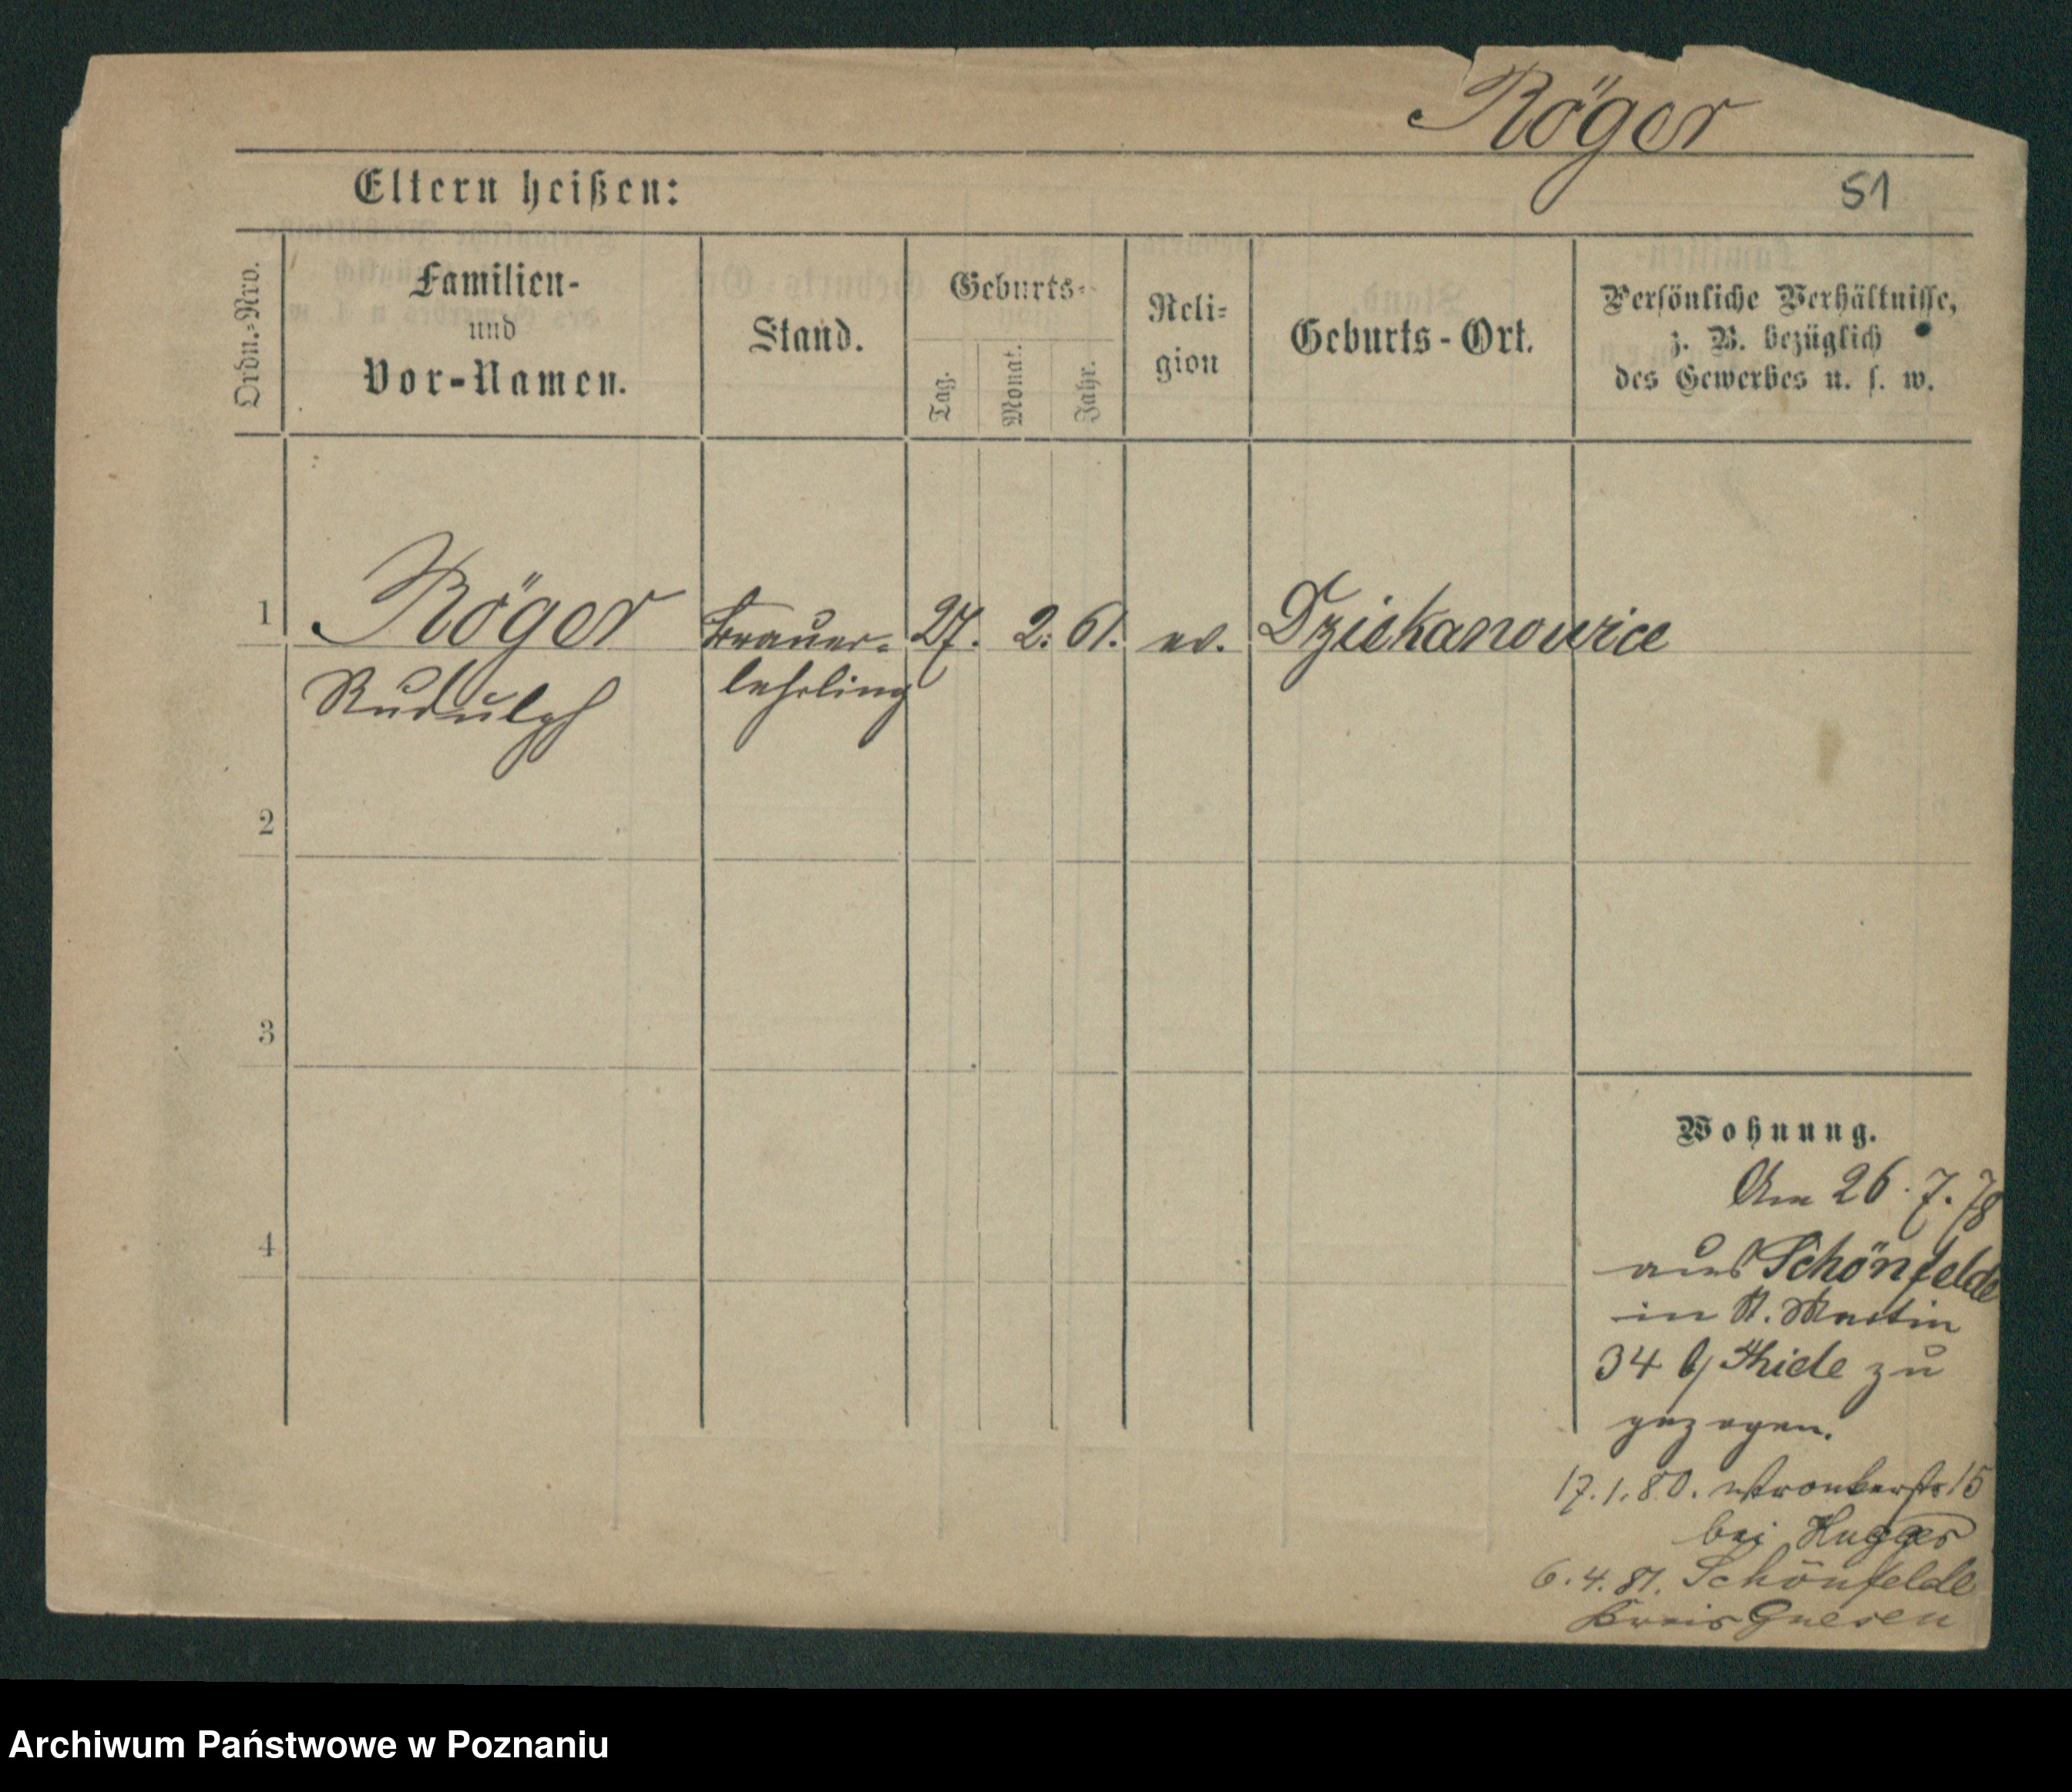 Röger
Eltern heißen:
51
Ordn.=Nro.
Familien-
und
Vor-Namen.
Stand.
Geburts-
Tag.
Monat.
Jahr.
Reli=
gion
Geburts-Ort.
Persönliche Verhältnisse,
z. B. bezüglich
des Gewerbes u. s. w.
1 Röger Brauer= 27. 2. 61. ev. Dziekanowice
Rudolph lehrling
2
3
4
Wohnung.
Am 26.7.78
aus Schönfelde
in St. Martin
34 b/ Thiele zu
gezogen.
17.1.80. Wronkerstr 15
bei Hugger
6.4.81. Schönfelde
Kreis Gnesen
Archiwum Państwowe w Poznaniu